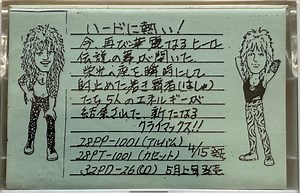 ハードに熱い！
今、再び華麗なるヒーロー
伝説の幕が開いた。
栄光の座を瞬時にして
射止めた若き覇者(はしゃ)
たち5人のエネルギーが
結集された、新たなる
クライマックス！！
28PP-1001(アルバム)
28PT-1001(カセット) 4/15発売
32PD-26(CD) 5月上旬発売